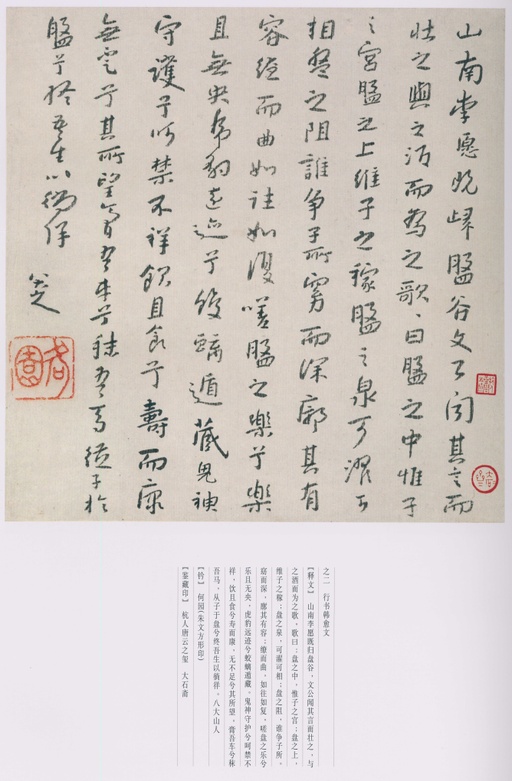 山南李愿既歸盤谷文公闻其言而
壯之與之酒而為之歌曰盤之中惟子
之宮盤之上維子之稼盤之泉可濯可
相盤之阻誰争子所窈而深廓其有
容繚而曲如往如復嗟盤之樂兮樂
且無央虎豹遠迹兮蛟螭遁藏鬼神
守護兮呵禁不祥飲且食兮壽而康
無足兮其所望膏吾車兮秣吾馬從子於
盤兮終吾生以徜徉
八大山人
何園
之二 行书韩愈文
【释文】 山南李愿既归盘谷，文公闻其言而壮之，与
之酒而为之歌，歌曰：盘之中，惟子之宫；盘之上，
维子之稼；盘之泉，可濯可相；盘之阻，谁争子所，
窈而深，廓其有容；缭而曲，如往如复，嗟盘之乐兮
乐且无央，虎豹远迹兮蛟螭遁藏，鬼神守护兮呵禁不
祥，饮且食兮寿而康，无不足兮其所望，膏吾车兮秣
吾马，从子于盘兮终吾生以徜徉。八大山人
【钤】 何园(朱文方形印)
【鉴藏印】 杭人唐云之玺 大石斋